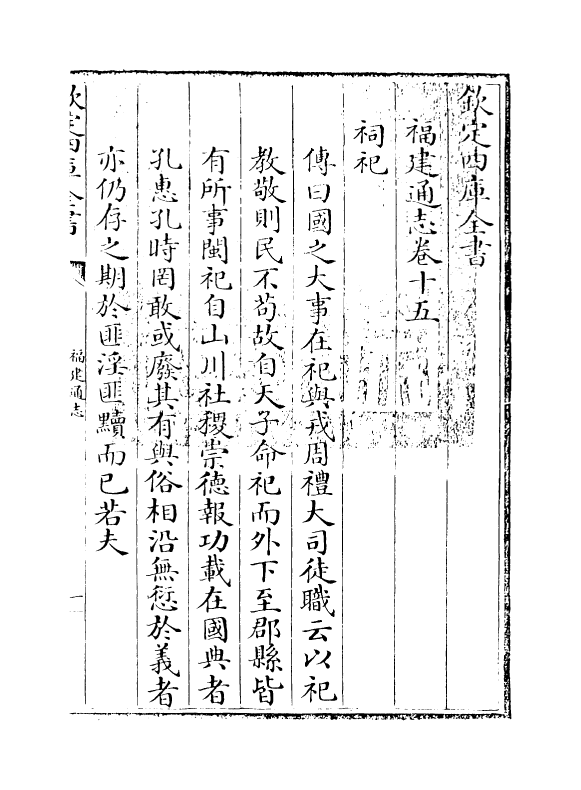 欽定四庫全書
福建通志卷十五
祠祀
傳曰國之大事在祀與戎周禮大司徒職云以祀
教敬則民不苟故自天子命祀而外下至郡縣皆
有所事閩祀自山川社稷崇德報功載在國典者
孔惠孔時罔敢或廢其有與俗相沿無愆於義者
亦仍存之期於匪淫匪黷而已若夫
欽定四庫全書
福建通志
一